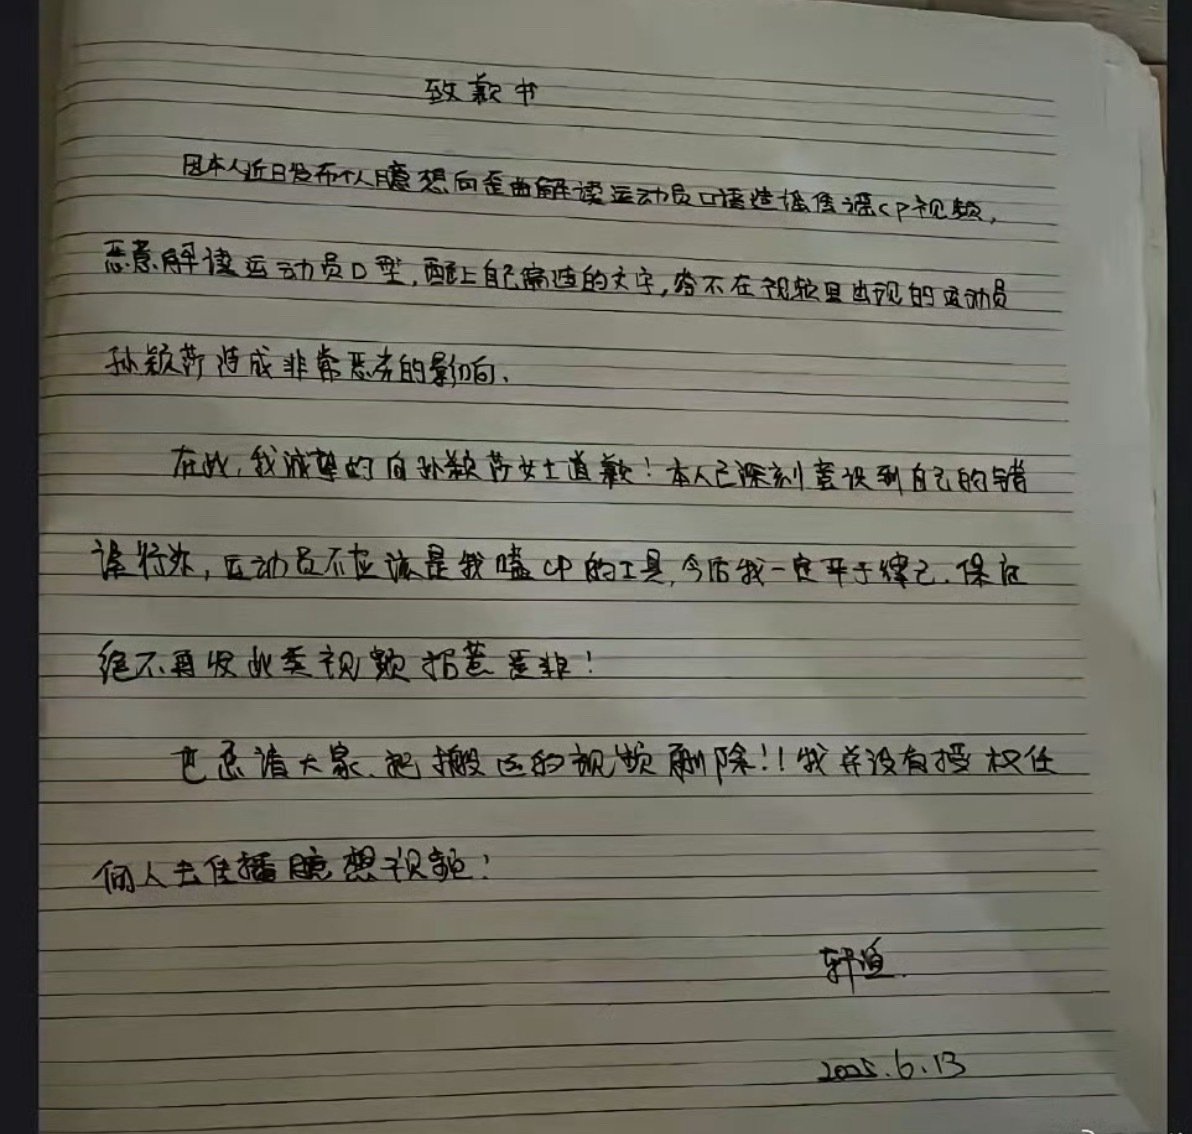 致歉书
因本人近日发布个人臆想向歪曲解读运动员口语造谣传谣CP视频,
恶意解读运动员口型,配上自己编造的文字,给不在视频里出现的运动员
孙颖莎造成非常恶劣的影响.
在此,我诚挚的向孙颖莎女士道歉!本人已深刻意识到自己的错
误行为,运动员不应该是我嗑CP的工具,今后我一定严于律己.保证
绝不再发此类视频招惹是非!
也恳请大家.把搬运的视频删除!!我并没有授权任
何人去传播臆想视频!
2025.6.13